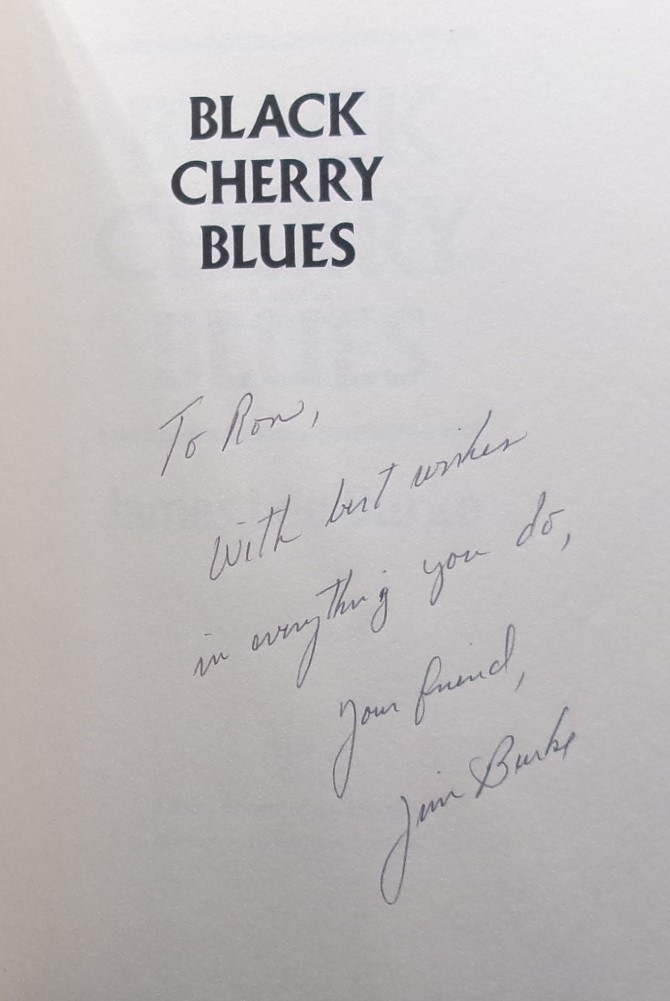 BLACK
CHERRY
BLUES
To Ron,
With best wishes
in everything you do,
Your friend,
Jim Burke